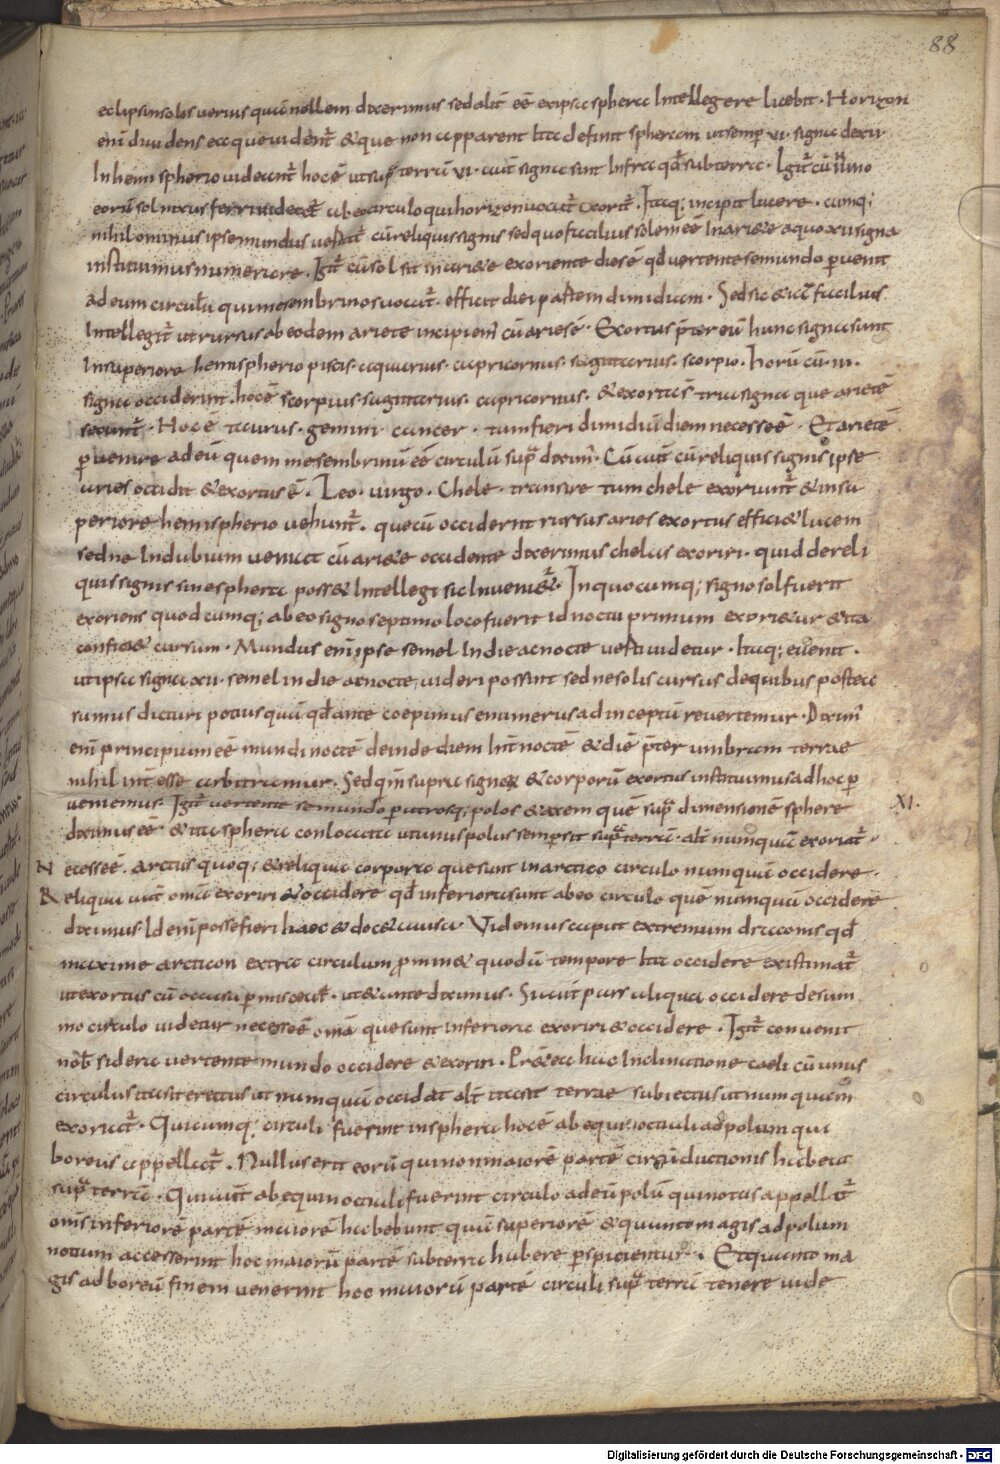 88
eclipsin solis uerius quā nollem dixerimus sed alit̄ eē ex ipsa sphera Intellegere licebit · Horizon
eni diuidens ea que uident̄ & que non apparent ita definit spheram ut semper vi · signa dexii·
In hemispherio uideant̄ hoc ē ut sup̄ terrā vi · aut signa sint Infra qd̄ sub terra · Igit̄ cū
eorū sol nixus ferri uidet̄ ab eo circulo qui horizon uocat̄ exorit̄ · Itaq; incipit lucere · cumq;
nihilominus ipse mundus uertat̄ cū reliquis signis sed quo facilius solem eē In ari&e a quo xii signa
instituimus numerare · Igit̄ cū sol sit in ari&e exoriente dies ē qd̄ uertente se mundo p̄uenit
ad eum circulū qui mesembrinos uocat̄ · efficit diei partem dimidiam · Sed sic &iā facilius
Intellegit̄ ut rursus ab eodem ariete incipiem̄ cū aries ē · Exortus p̄ter eū hunc signa sunt
In superiore hemispherio piscis · aquarius · capricornus · sagittarius · scorpio · horū cū · iii ·
signa occiderint · hoc ē scorpius · sagittarius · capricornus · & exorta s̄ tria signa que arietē
secunt̄ · Hoc ē taurus · gemini · cancer · tum fieri dimidiū diem necesse ē · Et arietē
p̄uenire ad eū quem mesembrinū eē circulū sup̄ diximꝰ · Cū aut̄ cū reliquis signis ipse
aries occidit & exortus ē · Leo · uirgo · Chele · transire tum chele exoriunt̄ & in su
periore hemispherio uehunt̄ · que cū occiderint rursus aries exortus effici& lucem
sed ne In dubium ueniat cū ari&e occidente dixerimus chelas exoriri · quid de reli
quis signis sine sphera poss& Intellegi sic Inueni&̄ · In quocumq; signo sol fuerit
exoriens quodcumq; ab eo signo septimo loco fuerit id noctu primum exori&ur & ita
confici& cursum · Mundus eni ipse semel In die ac nocte uerti uidetur · Itaq; euenit ·
ut ipsa signa xii · semel in die ac nocte uideri possint sed ne solis cursus de quibus postea
sumus dicturi potius quā qd̄ ante coepimus enumerus ad inceptū reuertemur · Diximꝰ
eni principium eē mundi noctē deinde diem Int̄ noctē & diē p̄ter umbram terrae
nihil int̄esse arbitramur · Sed qm̄ supra signa & corporū exortus instituimus ad hoc p̄
ueniemus · Igit̄ uertente se mundo p̄ utrosq; polos & axem quē sup̄ dimensionē sphere
XI·
diximus eē & ita sphera conlocata ut unus polus semper sit sup̄ terrā · alt̄ numquā exoriat̄ ·
Necesse ē · arctus quoq; & reliqua corpora que sunt in arctico circulo numquā occidere ·
Reliqua aut̄ omia exoriri & occidere qd̄ inferiora sunt ab eo circulo quē numquā occiderē
diximus Id eni posse fieri haec & doc& causa · Videmus caput extremum draconis qd̄
maxime arcticon extra circulum p̄min& quodū tempore ita occidere existimat̄
ut exortus cū occasu p̄misceat̄ · ut & ante diximus · Sicut pars aliqua occidere de sum
mo circulo uidetur necesse ē omā que sunt inferiora exoriri & occidere · Igit̄ conuenit
nob̄ sidera uertente mundo occidere & exoriri · Pr&ea hac Inclinatione caeli cū unus
circulus ita sit erectus ut numquā occidat alt̄ ita sit terrae subiectus ut numquam
exoriat̄ · Quicumq; circuli fuerint in sphera hoc ē ab equinoctiali ad polum qui
boreus appellat̄ · Nullus erit eorū qui non maiorē partē circūductionis habeat
sup̄ terrā · Qui aut̄ ab equinoctiali fuerint circulo ad eū polū qui notus appellat̄
omis inferiorē partē maiorē habebunt quā superiorē & quanto magis ad polum
notium accesserint hoc maiorū partē sub terra habere p̄spicientur · Et quanto ma
gis ad boreū finem uenerint hoc maiorū partē circuli sup̄ terrā tenere uide
Digitalisierung gefördert durch die Deutsche Forschungsgemeinschaft · DFG